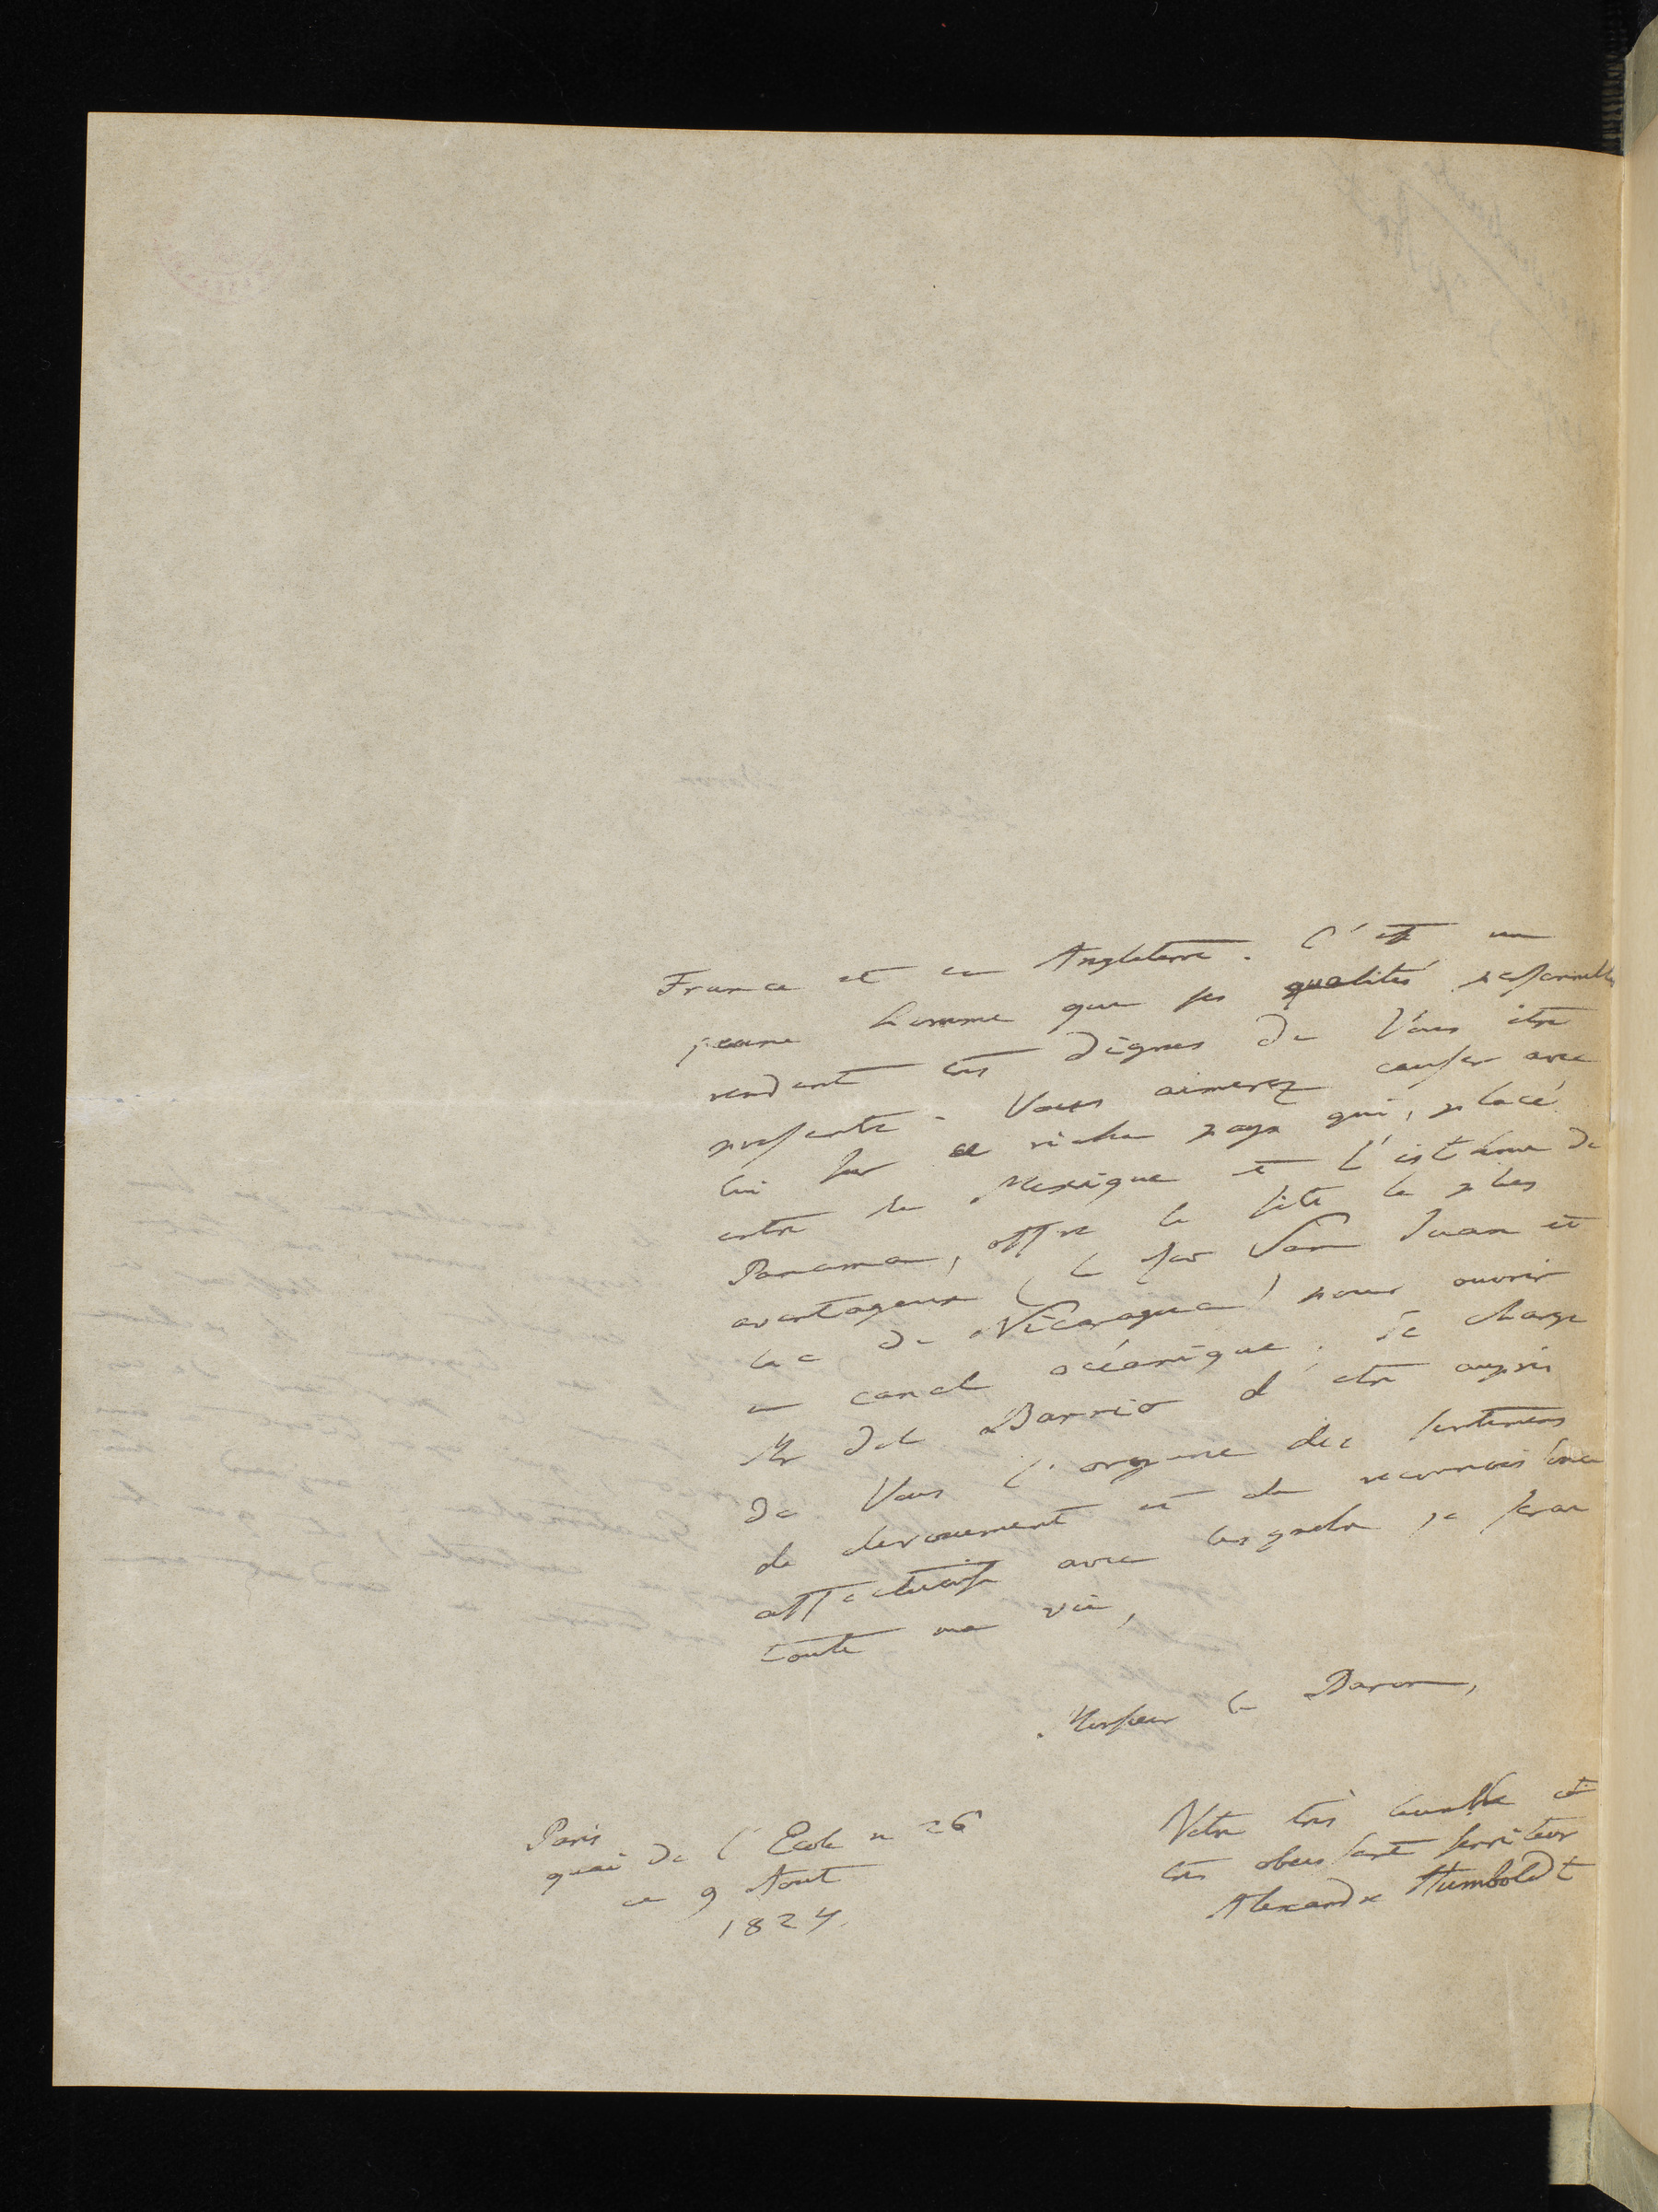 France et en Angleterre. C'est un
jeune homme que ses qualités personnelles
rendent très dignes de Vous être
presenté. Vous aimerez causer avec
lui sur ce riche pays qui, placé
entre le Mexique et l'isthme de
Panama, offre le site le plus
avantageux (le Rio San Juan et
lac de Nicaragua) pour ouvrir
un canal océanique. Je charge
Mr del Barrio d'être auprès
de Vous l'organe des sentimens
de devouement et de reconnoissance
affectueuse avec lesquels je serai
toute ma vie,
Monsieur le Baron,
Votre très humble et
très obeissant serviteur
Alexandre Humboldt
Paris
quai de l'Ecole n 26
ce 9 Aout
1824.